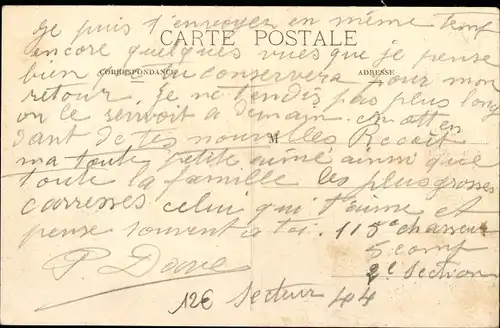 Je puis t'envoyer en même temp
CARTE POSTALE
encore quelques vues que je pense
CORRESPONDANCE
ADRESSE
bien que tu conservera pour mon
retour. Je ne t'endis pas plus long
on le servoit a demain. En atten
dant de tes nouvelles Recoit
M
ma toute petite aimé ainsi que
toute la famille les plus grosses
carresses celui qui t'aime et
pense souvent a toi. 115e chasseur
5 comp
P. Dave
2e Section
12€ Secteur 44